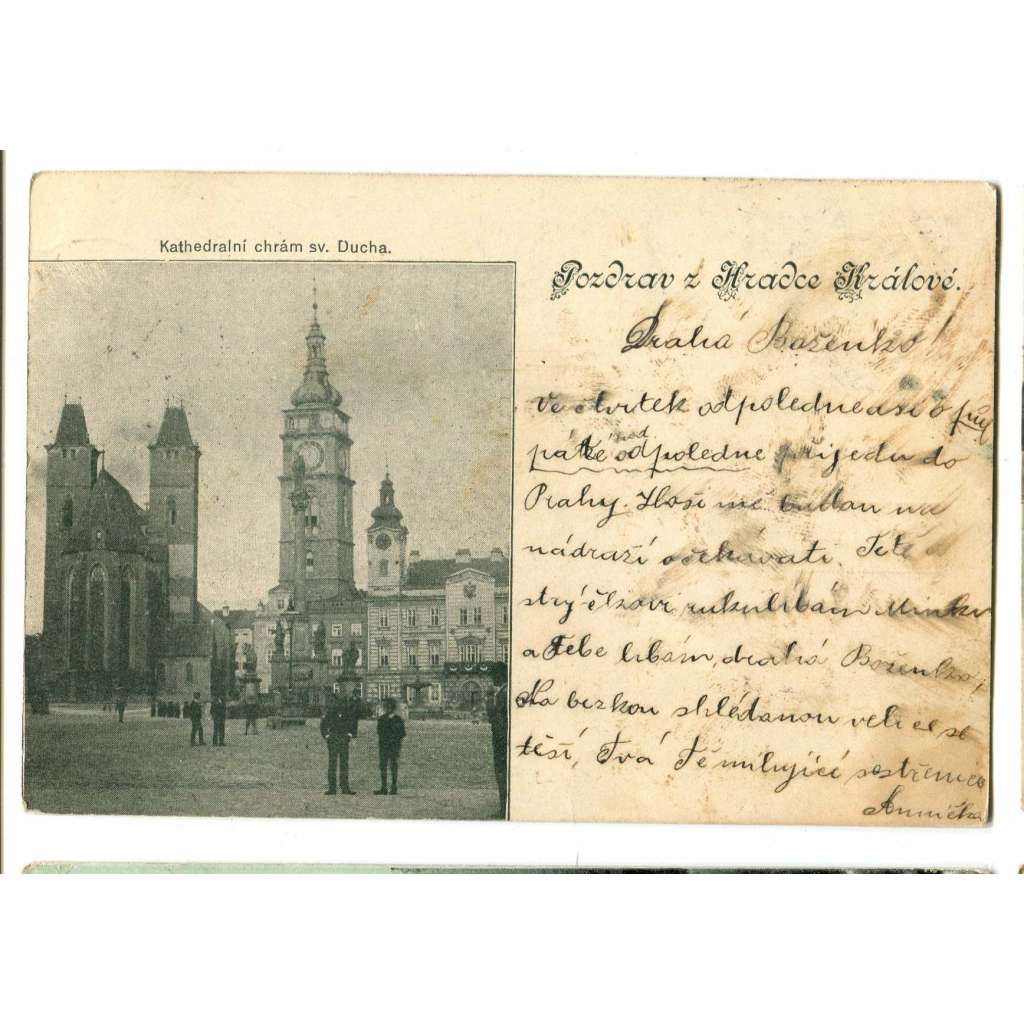 Kathedralní chrám sv. Ducha.
Pozdrav z Hradce Králové.
Drahá Boženko!
ve čtvrtek odpoledne asi o půl
páté odpoledne přijedu do
Prahy. Hoši mě budou na
nádraží očekávati. Tetě
strýčkovi rukulíbám Minku
a Tebe líbám, drahá Boženko,
Na bezkou shlédanou velice se
těší, Tvá Tě milující sestřenice
Annička